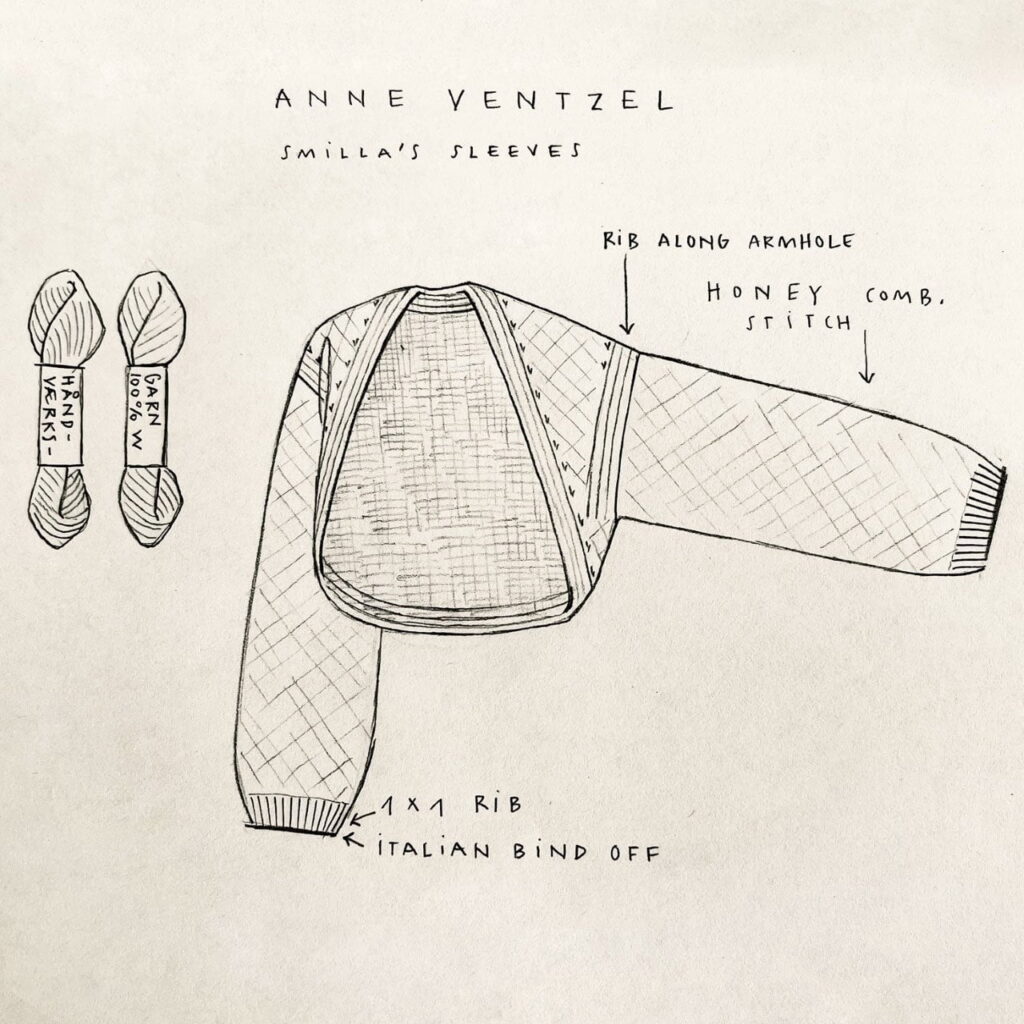 ANNE VENTZEL
SMILLA'S SLEEVES
RIB ALONG ARMHOLE
HONEY COMB.
STITCH
HÅND-
VÆRKS-
GARN
100% W
1 X 1 RIB
ITALIAN BIND OFF